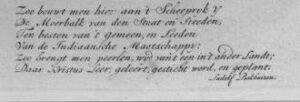 Zoo bouwt men hier aan't Scheepryk Y
De Moerbalk van den Staat en Steeden;
Ten besten van 't Gemeen, en Leeden
Van de Indiaansche Maatschappy:
Zoo brengt men peerlen, wyd van't een in't ander Landt;
Daar Kristus Leer, geleert, gedicht word, en geplant.
Ludolf Bakhuizen.